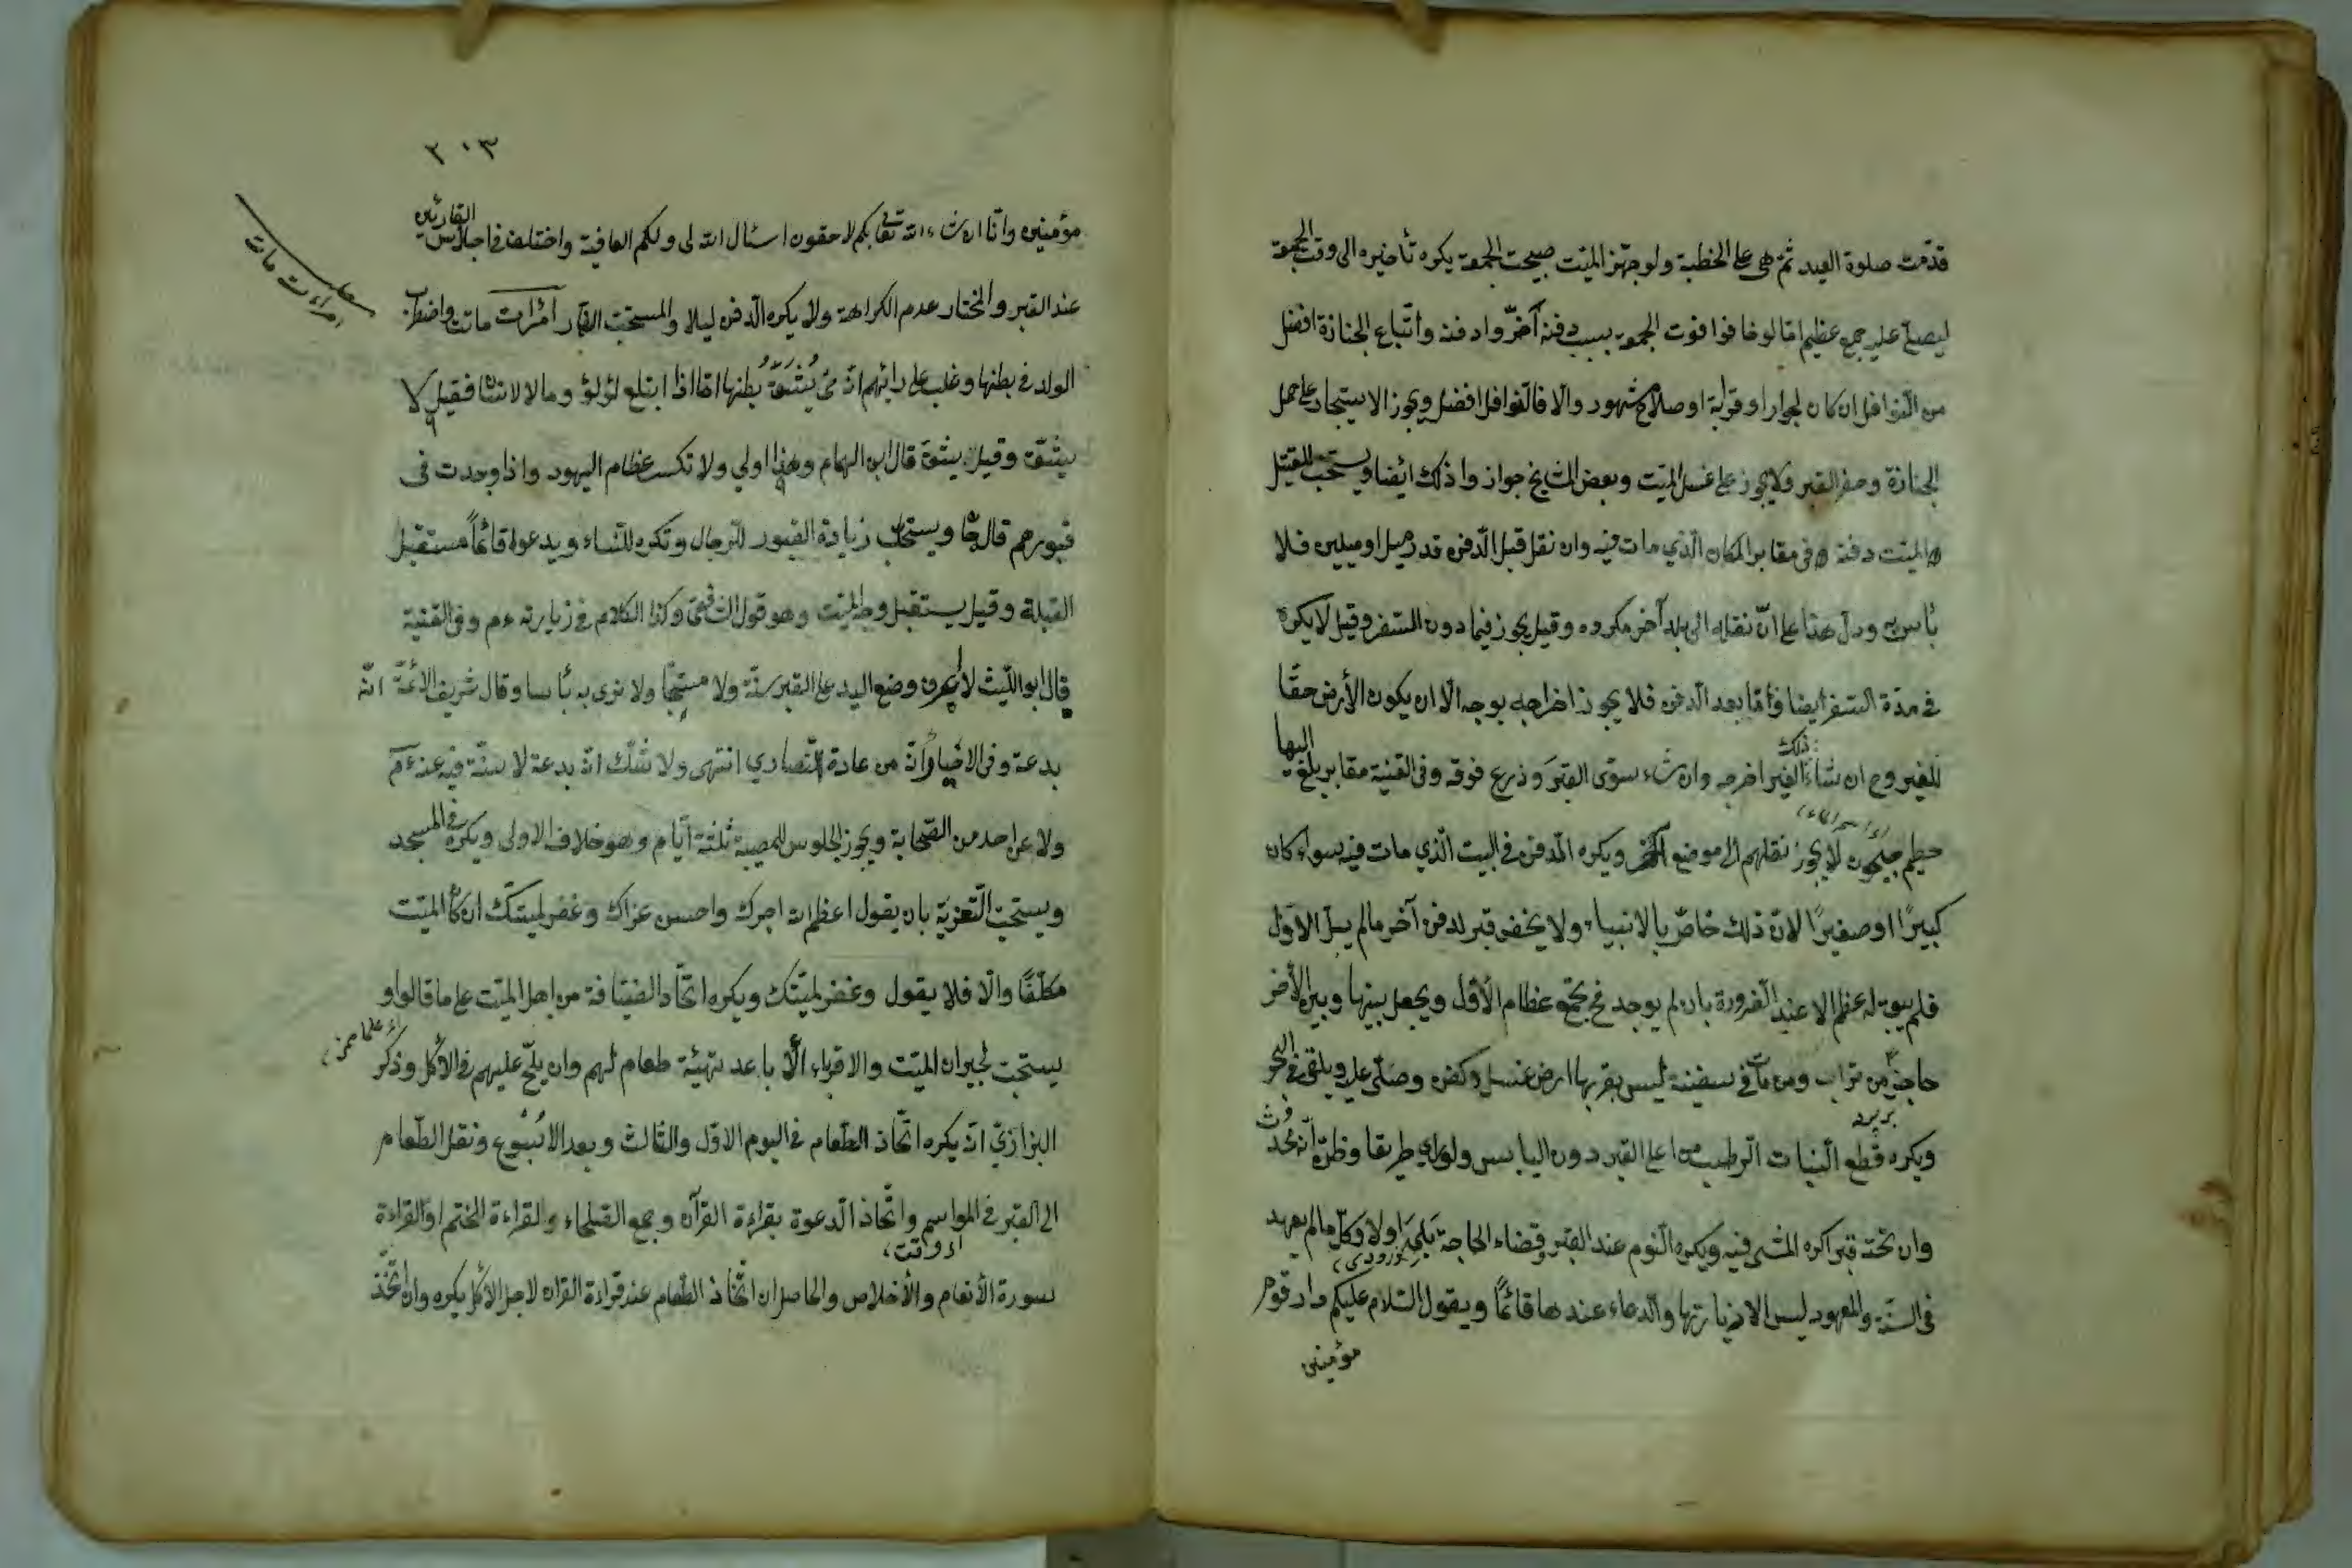 قدّمت صلوة العيد ثمّ هى على الخطبة ولو جهّز الميّت صبيحت الجمعة يكره تأخيره الى وقت الجمعة
ليصلّى عليه جمع عظيم امّا لو خافوا فوت الجمعة بسبب دفنه أخّروا دفنه واتّباع الجنازة افضل
من النّوافل ان كان لجوار او قرابة او صلاح مشهود والّا فالنّوافل افضل ويجوز الاستيجار على حمل
الجنازة وحفر القبر ولا يجوز على غسل الميّت وبعض المشايخ جوازوا ذلك ائضا ويستحب للقتيل
والميّت دفنه فى مقابر المكان الّذي مات فيه وان نقل قبل الدّفن قدر ميل او ميلين فلا
بأس به ودلّ هذا على انّ نقله الى بلد آخر مكروه وقيل يجوز فيما دون السّفر وقيل لا يكره
فى مدّة السّفر ايضا وأمّا بعد الدّفن فلا يجوز اخراجه بوجه الّا ان يكون الأرض حقّا
للغير وح ان شاء ذلك الغير اخرجه وان شاء سوّى القبرَ وزرع فوقه وفى القنية مقابر بلغ اليها
حطيم جيحون لا يجوز نقلهم الى موضع آخر ويكره الدفن فى البيت الّذي مات فيه سواء كان
كبيرًا او صغيرًا لانّ ذلك خاصّ بالانبياء ولا يحفر قبر لدفن آخر مالم يبل الاوّل
فلم يبق له عظم الا عند الضّرورة بان لم يوجد فح يجمع عظام الأوّل ويجعل بينها وبين الأخر
حاجز من تراب ومن مات فى سفينة ليس بقربها ارض غسل وكفن وصلّى عليه ويلقى فى البحر
ويكره قطع النّبات الرّطب من اعلى القبر دون اليابس ولو رأى طريقا وظنّ أنّه محدث
وان تحته قبرا كره المشى فيه ويكره النّوم عند القبر وقضاء الحاجة بَلْ اولا وكلّ مالم يعهد
فى السّنّة والمعهود ليس الا زيارتها والدعاء عندها قائمًا ويقول السّلام عليكم دار قوم
مؤمنين
٢٠٣
مؤمنين وانّا ان شاء الله تعا بكم لاحقون اسئال الله لى ولكم العافية واختلف فى اجلاس القارئين
عند القبر والمختار عدم الكراهة ولا يكره الدّفن ليلا والمستحب النهار أمرات ماتت واضطرب
امراءت مات
الولد فى بطنها وغلب على رائهم انّه حىّ يُشَقُّ بطنها امّا اذا ابتلع لؤلؤ ومالا لانسا فقيل لا
يشقّ وقيل يشقّ قال ابن الهمام وهذا اولي ولا تكسر عظام اليهود واذا وجدت فى
قبورهم ويستحب زيارة القبور للرّجال وتكره للنّساء ويدعوا قائمًا مستقبل
القبلة وقيل يستقبل وجه الميّت وهو قول الشافعى وكذا الكلام فى زيارته ءم وفى القنية
قال ابو اللّيث لا يعرف وضع اليد على القبر سنّة ولا مستحبّا ولا نرى به بأسا وقال شريف الائمّة انّه
بدعة وفى الاحياء وأنّه من عادة النّصاري انتهى ولا شكّ انه بدعة لا سنّة فيه عنه ءم
ولا عن احد من الصّحابة ويجوز الجلوس للمصيبة ثلثة ايّام وهو خلاف الاولى ويكره فى المسجد
ويستحبّ التّعزيَة بان يقول اعظم الله اجرك واحسن عزاك وغفر لميّتك ان كان الميّت
مكلّفًا والّا فلا يقول وغفر لميّتك ويكره اتّخاد الضّيافة من اهل الميّت على ما قالوا و
يستحبّ لجيران الميّت والاقرباء الأباعد تهيئة طعام لهم وان يلحّ عليهم فى الأكل وذكر
البزازيّ انّه يكره اتّخاذ الطّعام فى اليوم الاوّل والثّالث وبعد الاُسْبُوع ونقل الطّعام
الى القبر فى المواسم واتّخاذ الدعوة بقراءة القرآن وجمع الصّلحاء والقراءة للختم او لقراءة
سورة الأنعام والأخلاص والحاصل ان اتّخاذ الطّعام عند قراءة القران لاجل الأكل يكره وان اتّخذ